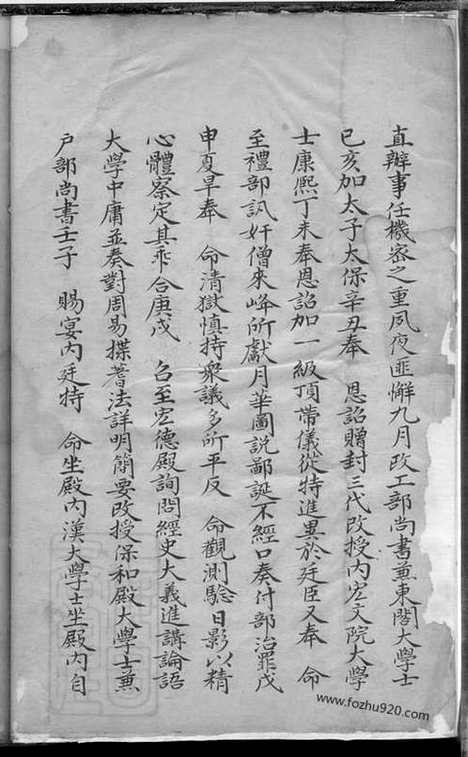 直辦事任機密之重夙夜匪懈九月改工部尚書兼東閣大學士
已亥加太子太保辛丑奉　恩詔贈封三代改授内宏文院大學
士康熙丁未奉恩詔加一級頂帶儀從特進異於廷臣又奉　命
至禮部訊奸僧來峰所獻月華圖說鄙誕不經口奏付部治罪戊
申夏旱奉　命清獄慎持衆議多所平反　命觀測驗日影以精
心體察定其乖合庚戌　召至宏德殿詢問經史大義進講論語
大學中庸並奏對周易揲蓍法詳明簡要改授保和殿大學士兼
戶部尚書壬子　賜宴内廷特　命坐殿内漢大學士坐殿内自
www.fozhu920.com